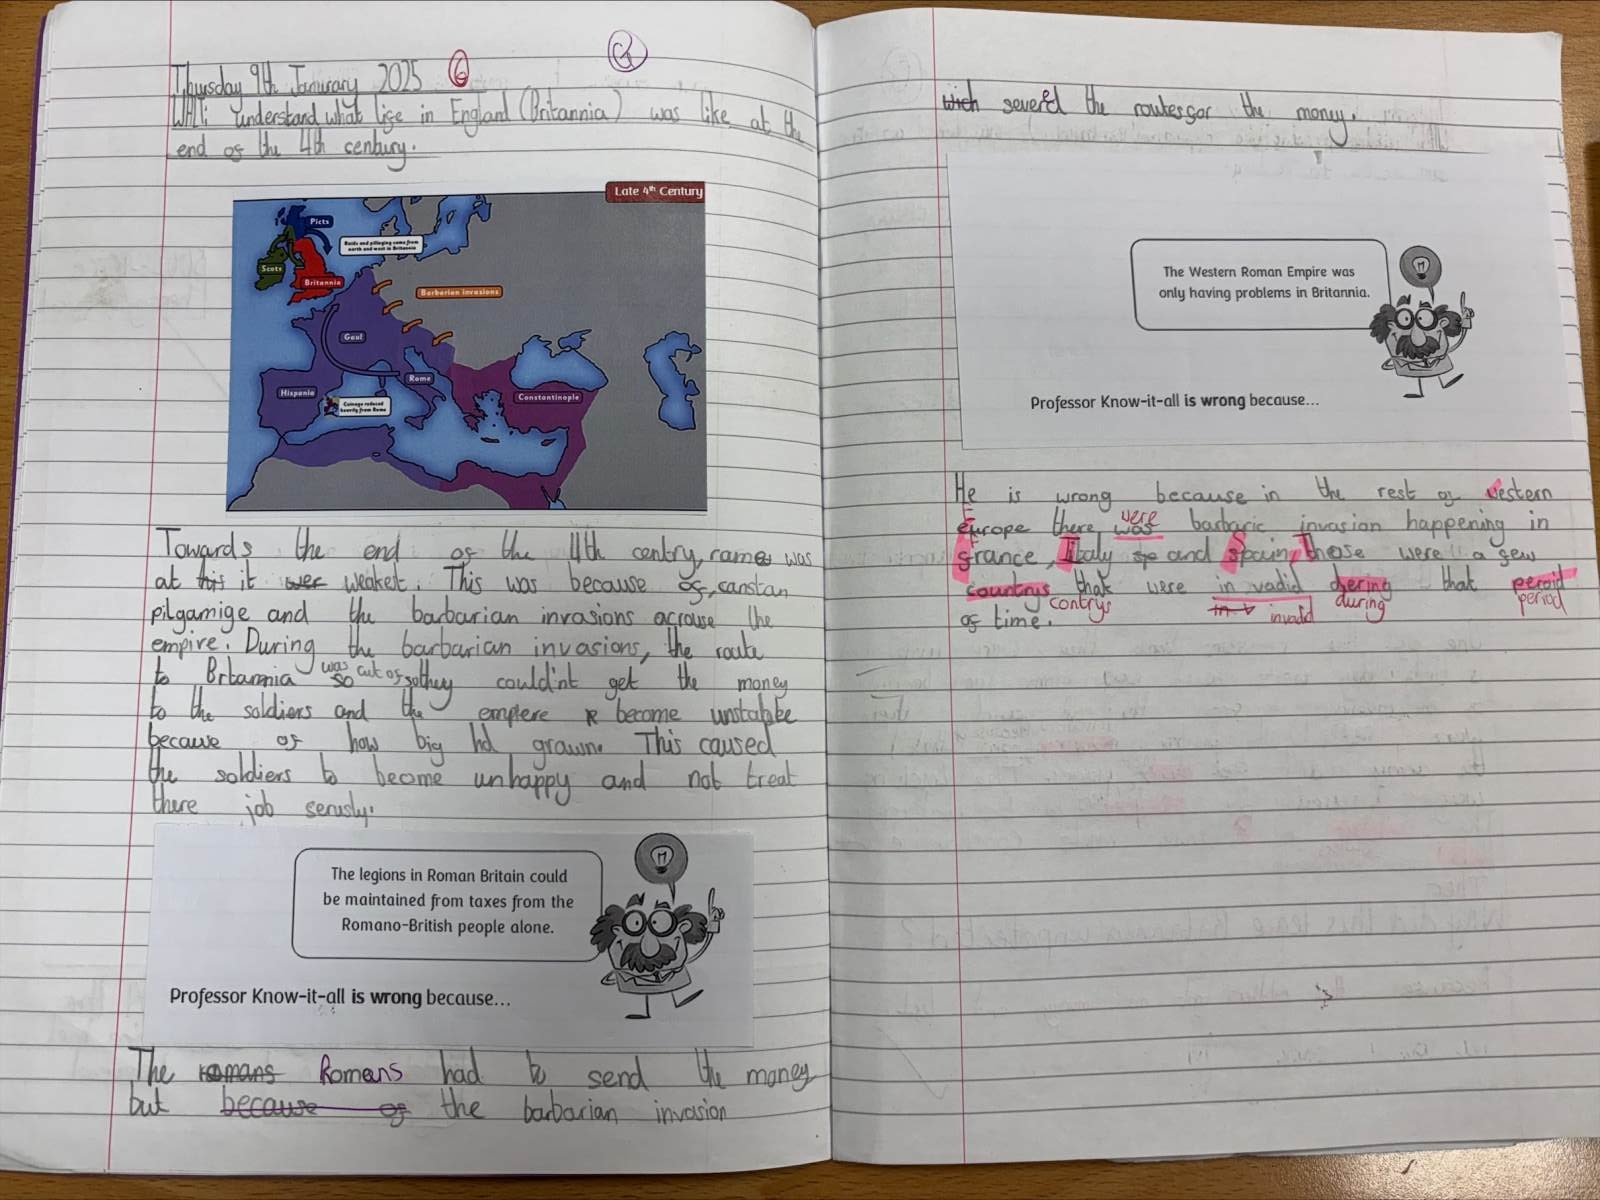 Thursday 9th Janurary 2025 G G
WALT: understand what life in England (Britannia) was like at the
end of the 4th century.
Late 4th Century
Picts
Raids and pillaging came from
north and west in Britannia
Scots
Britannia
Barbarian invasions
Gaul
Rome
Hispania
Coinage reduced
heavily from Rome
Constantinople
Towards the end of the 4th centry, rame was
at this it over weaket. This was because of, canstan
pilgamige and the barbarian invasions acrouse the
empire. During the barbarian invasions, the route
to Brtannia was so cut of so they could'nt get the money
to the soldiers and the empiere become unstable
because of how big hd grawn. This caused
the soldiers to become unhappy and not treat
there job seriusly.
The legions in Roman Britain could
be maintained from taxes from the
Romano-British people alone.
Professor Know-it-all is wrong because...
The romans Romans had to send the money
but because of the barbarian invasion
wich severed the routes for the money.
The Western Roman Empire was
only having problems in Britannia.
Professor Know-it-all is wrong because...
He is wrong because in the rest of Western
Europe there was were barbaric invasion happening in
france, Italy and Spain, Those were a few
countrys that were in vaild dering that peroid
contrys in v invaid during period
of time.